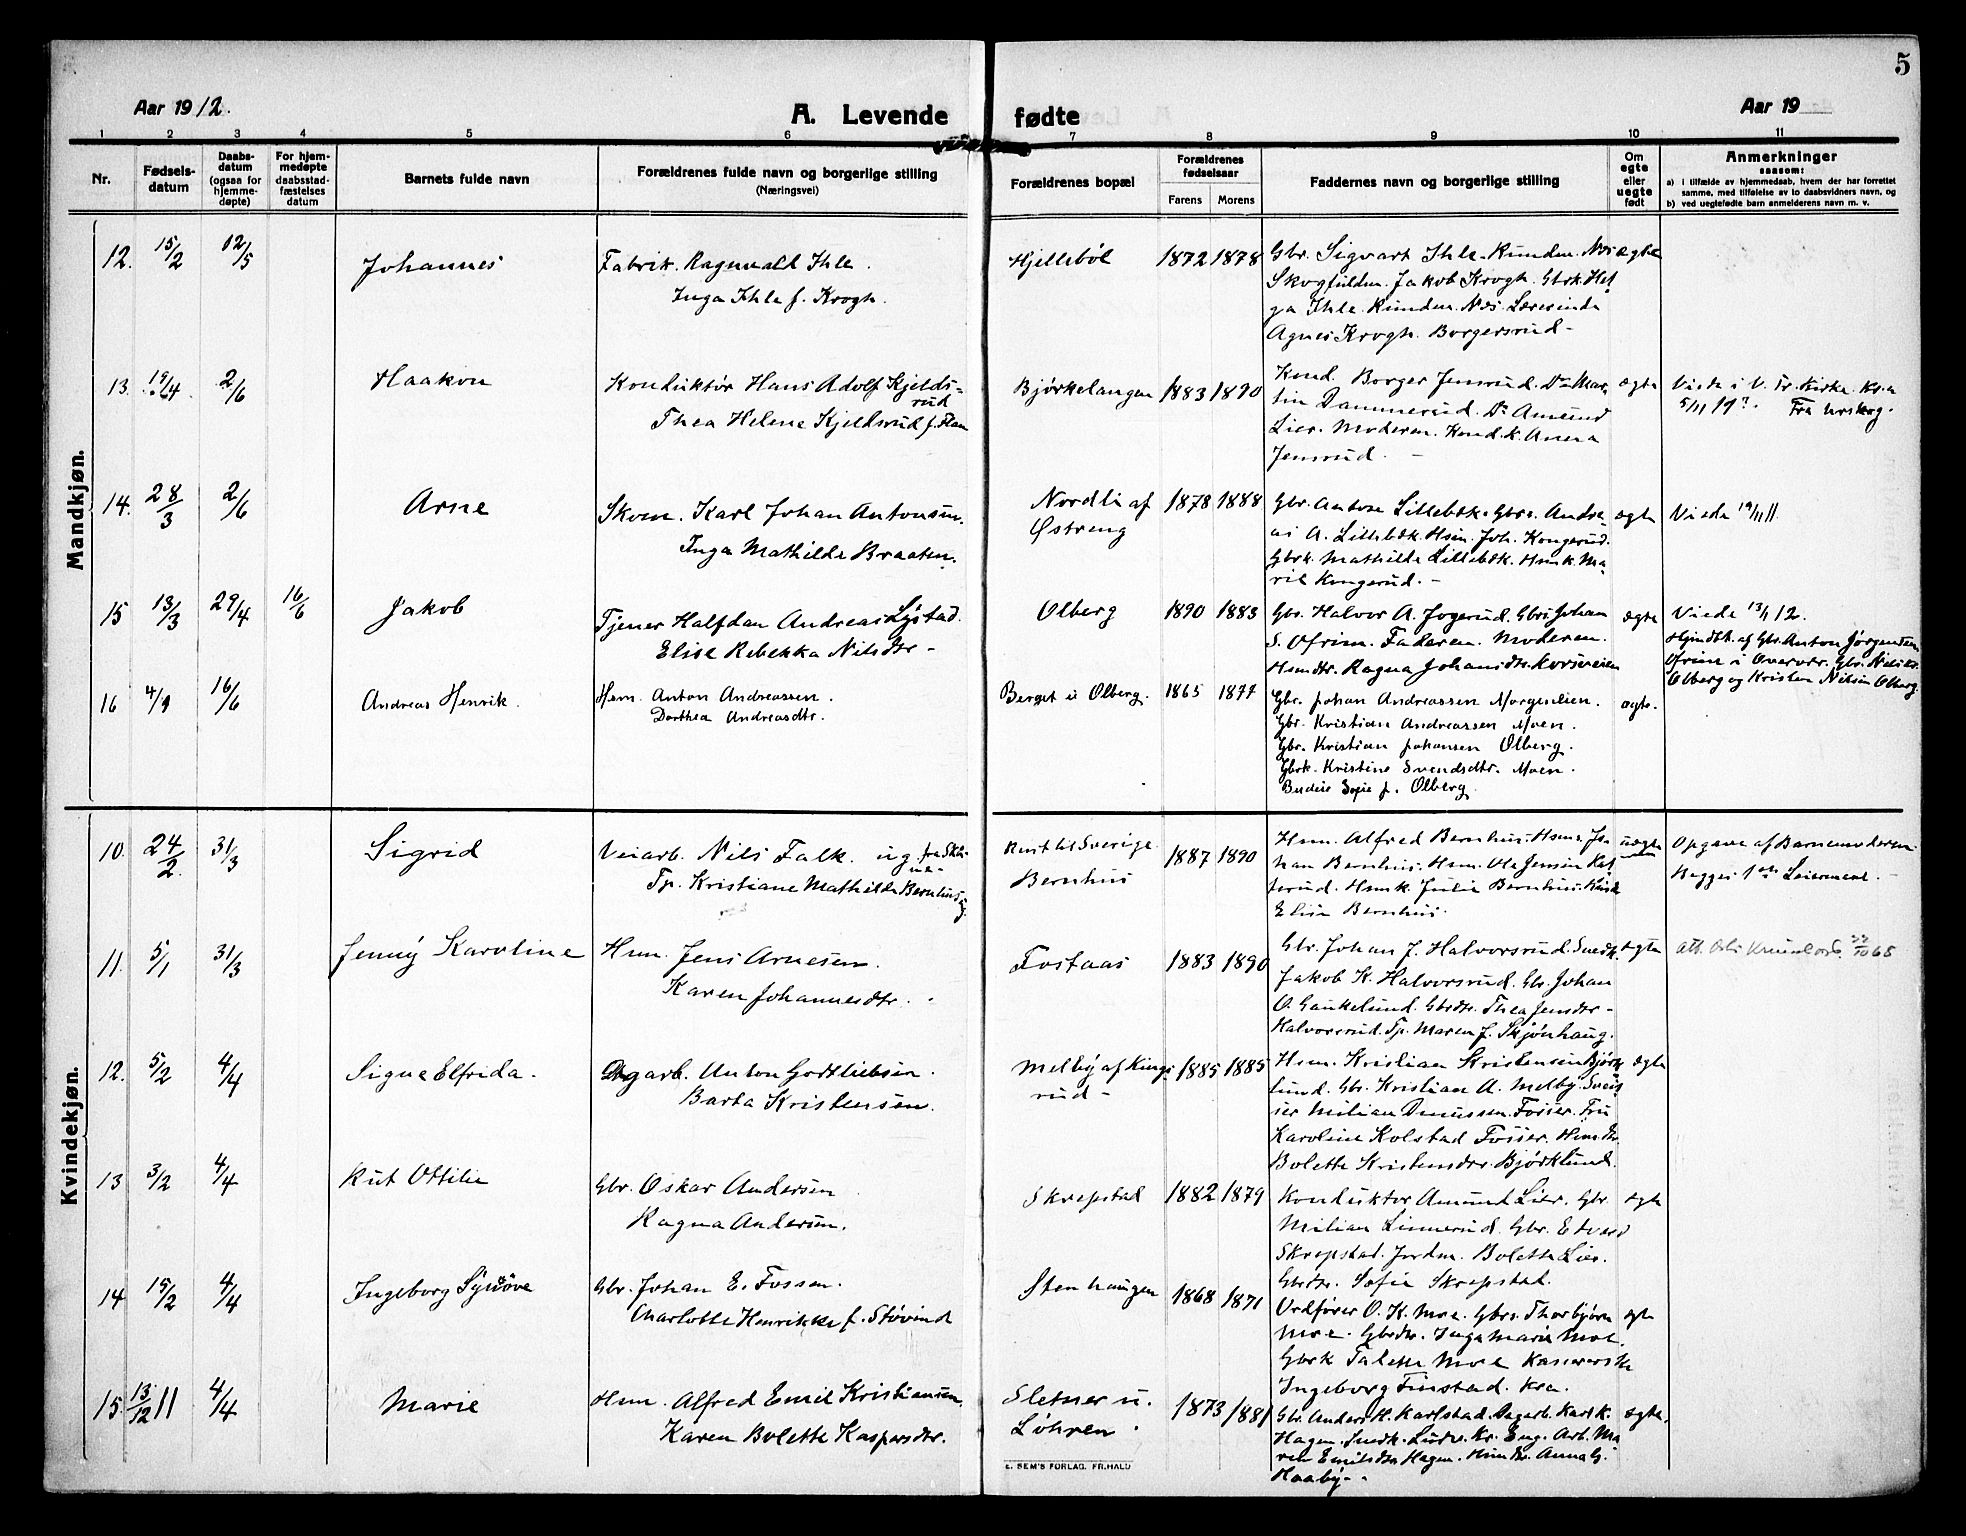 5
Aar 1912.
A. Levende fødte
Aar 19
1 2 3 4 5 6 7 8 9 10 11
Nr.
Fødsels-
datum
Daabs-
datum
(ogsaa for
hjemme-
døpte)
For hjem-
medøpte
daabsstad-
fæstelses
datum
Barnets fulde navn
Forældrenes fulde navn og borgerlige stilling
(Næringsvei)
Forældrenes bopæl
Forældrenes
fødselsaar
Farens Morens
Faddernes navn og borgerlige stilling
Om
egte
eller
uegte
født
Anmerkninger
saasom:
a) i tilfælde av hjemmedaab, hvem der har forrettet
samme, med tilføielse av to daabsvidners navn, og
b) ved uegtefødte barn anmelderens navn m. v.
Mandkjøn.
12. 15/2 12/5 Johannes
Fabrik. Ragnvald Ihle.
Inga Ihle f. Krogh.
Hjellebøl 1872 1878
Gbr. Sigvart Ihle. Runden. Nes
Skogfuldm. Jakob Krogh. Gbrk. Hel
ga Ihle. Runden. Nes. Lærerinde
Agnes Krogh. Borgersrud -
egte
13. 19/4 2/6 Haakon
Konduktør Hans Adolf Kjelds-
rud
Thea Helene Kjeldsrud f. Flam
Bjørkelangen 1883 1890
Kond. Borger Jensrud. Do Mar-
tin Dammerud. Do Amund
Lier. Moderen. Kond.k. Anna
Jensrud. -
egte
Viede i V. Fr. Kirke. Kr.a
Fra Urskog.
14. 28/3 2/6 Arne
Skom. Karl Johan Antonsen.
Inga Mathilde Braaten.
Nordli af
Østreng
1878 1888
Gbr. Anton Lillebæk. Gbrs. Andre-
as A. Lillebæk. Hsm. Joh. Kongerud.
Gbrk. Mathilde Lillebæk. Hsmk. Ma-
rie Kongerud. -
egte
Viede 19/11 11
15 13/3 29/4 16/6 Jakob
Tjener Halfdan Andreas Lystad.
Elise Rebekka Nilsdtr -
Olberg 1890 1883
Gbr. Halvor A. Jogerud. Gbrs. Johan
S. Ofrim. Faderen. Moderen.
Hsmdtr. Ragna Johansdtr. Korsveien
egte
Viede 13/1 12.
Hjmdbt. af Gbr. Anton Jørgensen
Ofrim i Overvær. Gbr. Nils
Olberg og Kristen Nilsen Olberg.
16 4/9 16/6 Andreas Henrik.
Hsm. Anton Andreassen.
Dorthea Andreasdtr.
Berget u Olberg. 1865 1877
Gbr. Johan Andreassen Morgenlien.
Gbr. Kristian Andreassen Moen.
Gbr. Kristian Johansen Olberg.
Gbrk. Kristine Svendsdtr. Moen.
Budeie Sofie f. Olberg.
egte.
Kvindekjøn.
10. 24/2. 31/3 Sigrid
Veiarb. Nils Falk. ug fra Skåne-
Tp. Kristiane Mathilde Bernhus ug
Reist til Sverige.
Bernhus
1887 1890
Hsm. Alfred Bernhus. Hsms. Jo-
han Bernhus. Hsm. Ole Jensen Kat
terud. Hsmk. Julie Bernhus. Pike
Elise Bernhus.
uegte
Opgave af Barnemoderen.
Begges 1ste Leiermaal. -
11. 5/1 31/3 Jenny Karoline
Hsm. Jens Arnesen.
Karen Johannesdtr.
Fostaas 1883 1890
Gbr. Johan J. Halvorsrud. Snedk.
Jakob K. Halvorsrud. Gbr. Johan
O. Gaukelund. Gbrdtr. Thea Jensdtr -
Halvorsrud. Tp. Maren J. Skjønhaug.
egte
12. 5/2 4/4 Signe Elfrida.
Dagarb. Anton Gottliebsen.
Barta Kristensen.
Melby af Kings
rud -
1885 1885
Hsm. Kristian Kristensen Bjørk-
lund. Gbr. Kristian A. Melby. Svei-
ser Milian Fosser. Fru
Karoline Kolstad Fosser. Hsmdtr.
Bolette Kristensdtr. Bjørklund.
egte
13 3/2 4/4 Rut Ottilie
Gbr. Oskar Andersen
Ragna Andersen.
Skrepstad 1882 1879
Konduktør Amund Lier. Gbr.
Milian Linnerud. Gbr. Edvard
Skrepstad. Jordm. Bolette Lier.
Gbrdtr. Sofie Skrepstad.
egte
14 15/2 4/4 Ingeborg Synnøve
Gbr. Johan E. Fossen.
Charlotte Henrikke f. Støvind
Stenhaugen 1868 1871
Ordfører O. K. Moe. Gbrs. Thorbjørn
Moe. Gbrdtr. Inga Marie Moe.
Gbrk Talette Moe Kasererske
Ingeborg Finstad. Kra.
egte
15. 13/12 11 4/4 Marie
Hsm. Alfred Emil Kristiansen
Karen Bolette Kaspersdtr.
Sletner u.
Løhren.
1873 1881
Gbr. Anders H. Karlstad. Dagarb. Karl K.
Hagen. Snedk. Eng. Arb. Ma-
ren Emilsdtr Hagen. Hsmdtr. Anna G.
Haaby -
egte.
E. SEM'S FORLAG. FR.HALD